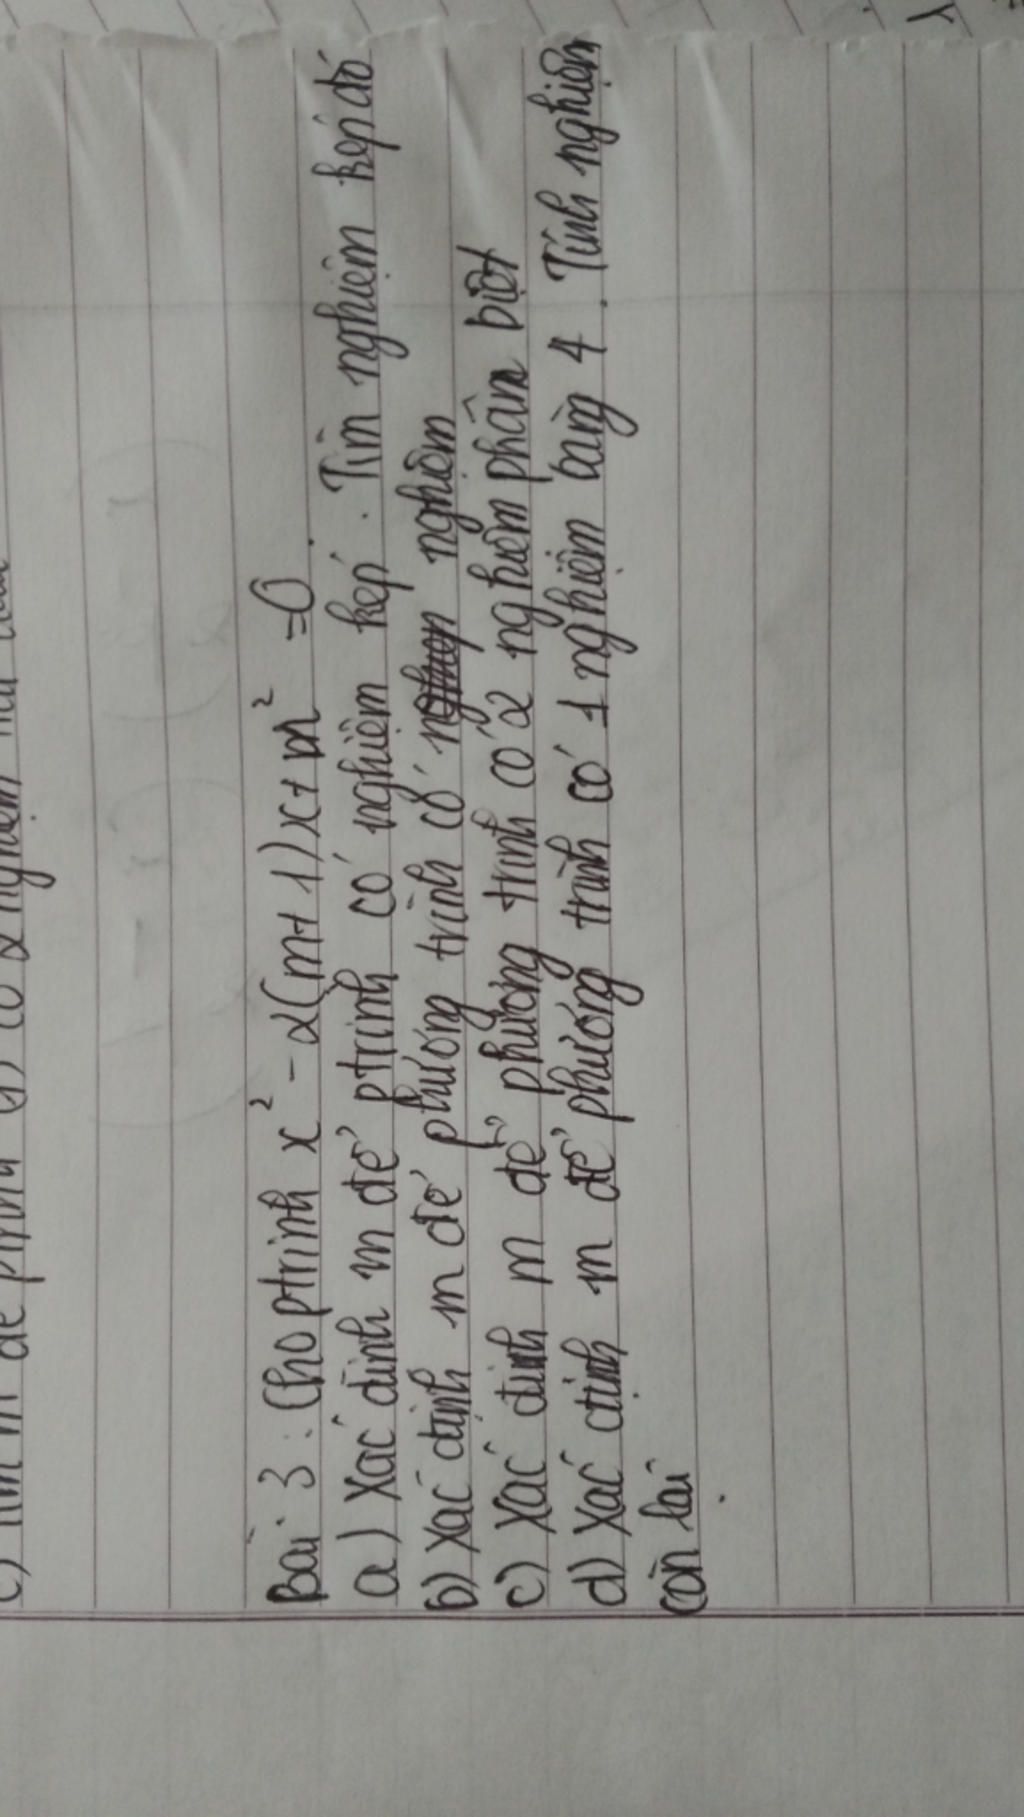 Bài 3 : Cho ptrình x² - 2(m+1)x + m² = 0
a) Xác định m để ptrình có nghiệm kép . Tìm nghiệm kép đó
b) Xác định m để phương trình có nghiệm
c) Xác định m để phương trình có 2 nghiệm phân biệt
d) Xác định m để phương trình có 1 nghiệm bằng 4 . Tính nghiệm
còn lại